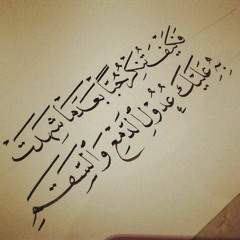 فَكَيْفَ تُنْكِرُ حُبًّا بَعْدَمَا شَهِدَتْ
بِهِ عَلَيْكَ عُدُولُ الدَّمْعِ وَالسَّقَمِ